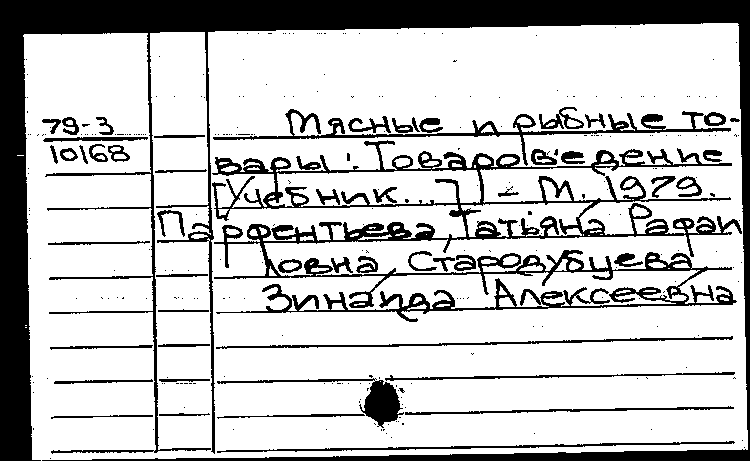 79-3
10168
Мясные и рыбные то-
вары: Товароведение
[Учебник...]) - М. 1979.
Парфентьева, Татьяна Рафаи
ловна Стародубцева
Зинаида Алексеевна